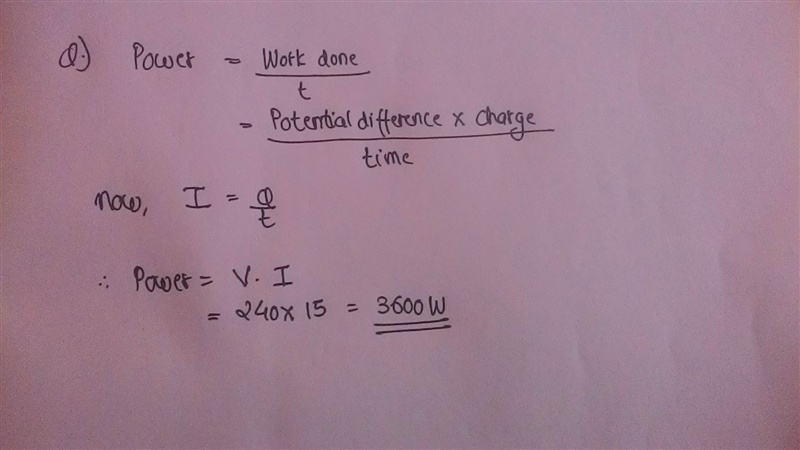 Q.) Power = Work done / t
= Potential difference x charge / time
now, I = Q / t
∴ Power = V. I
= 240 x 15 = 3600 W